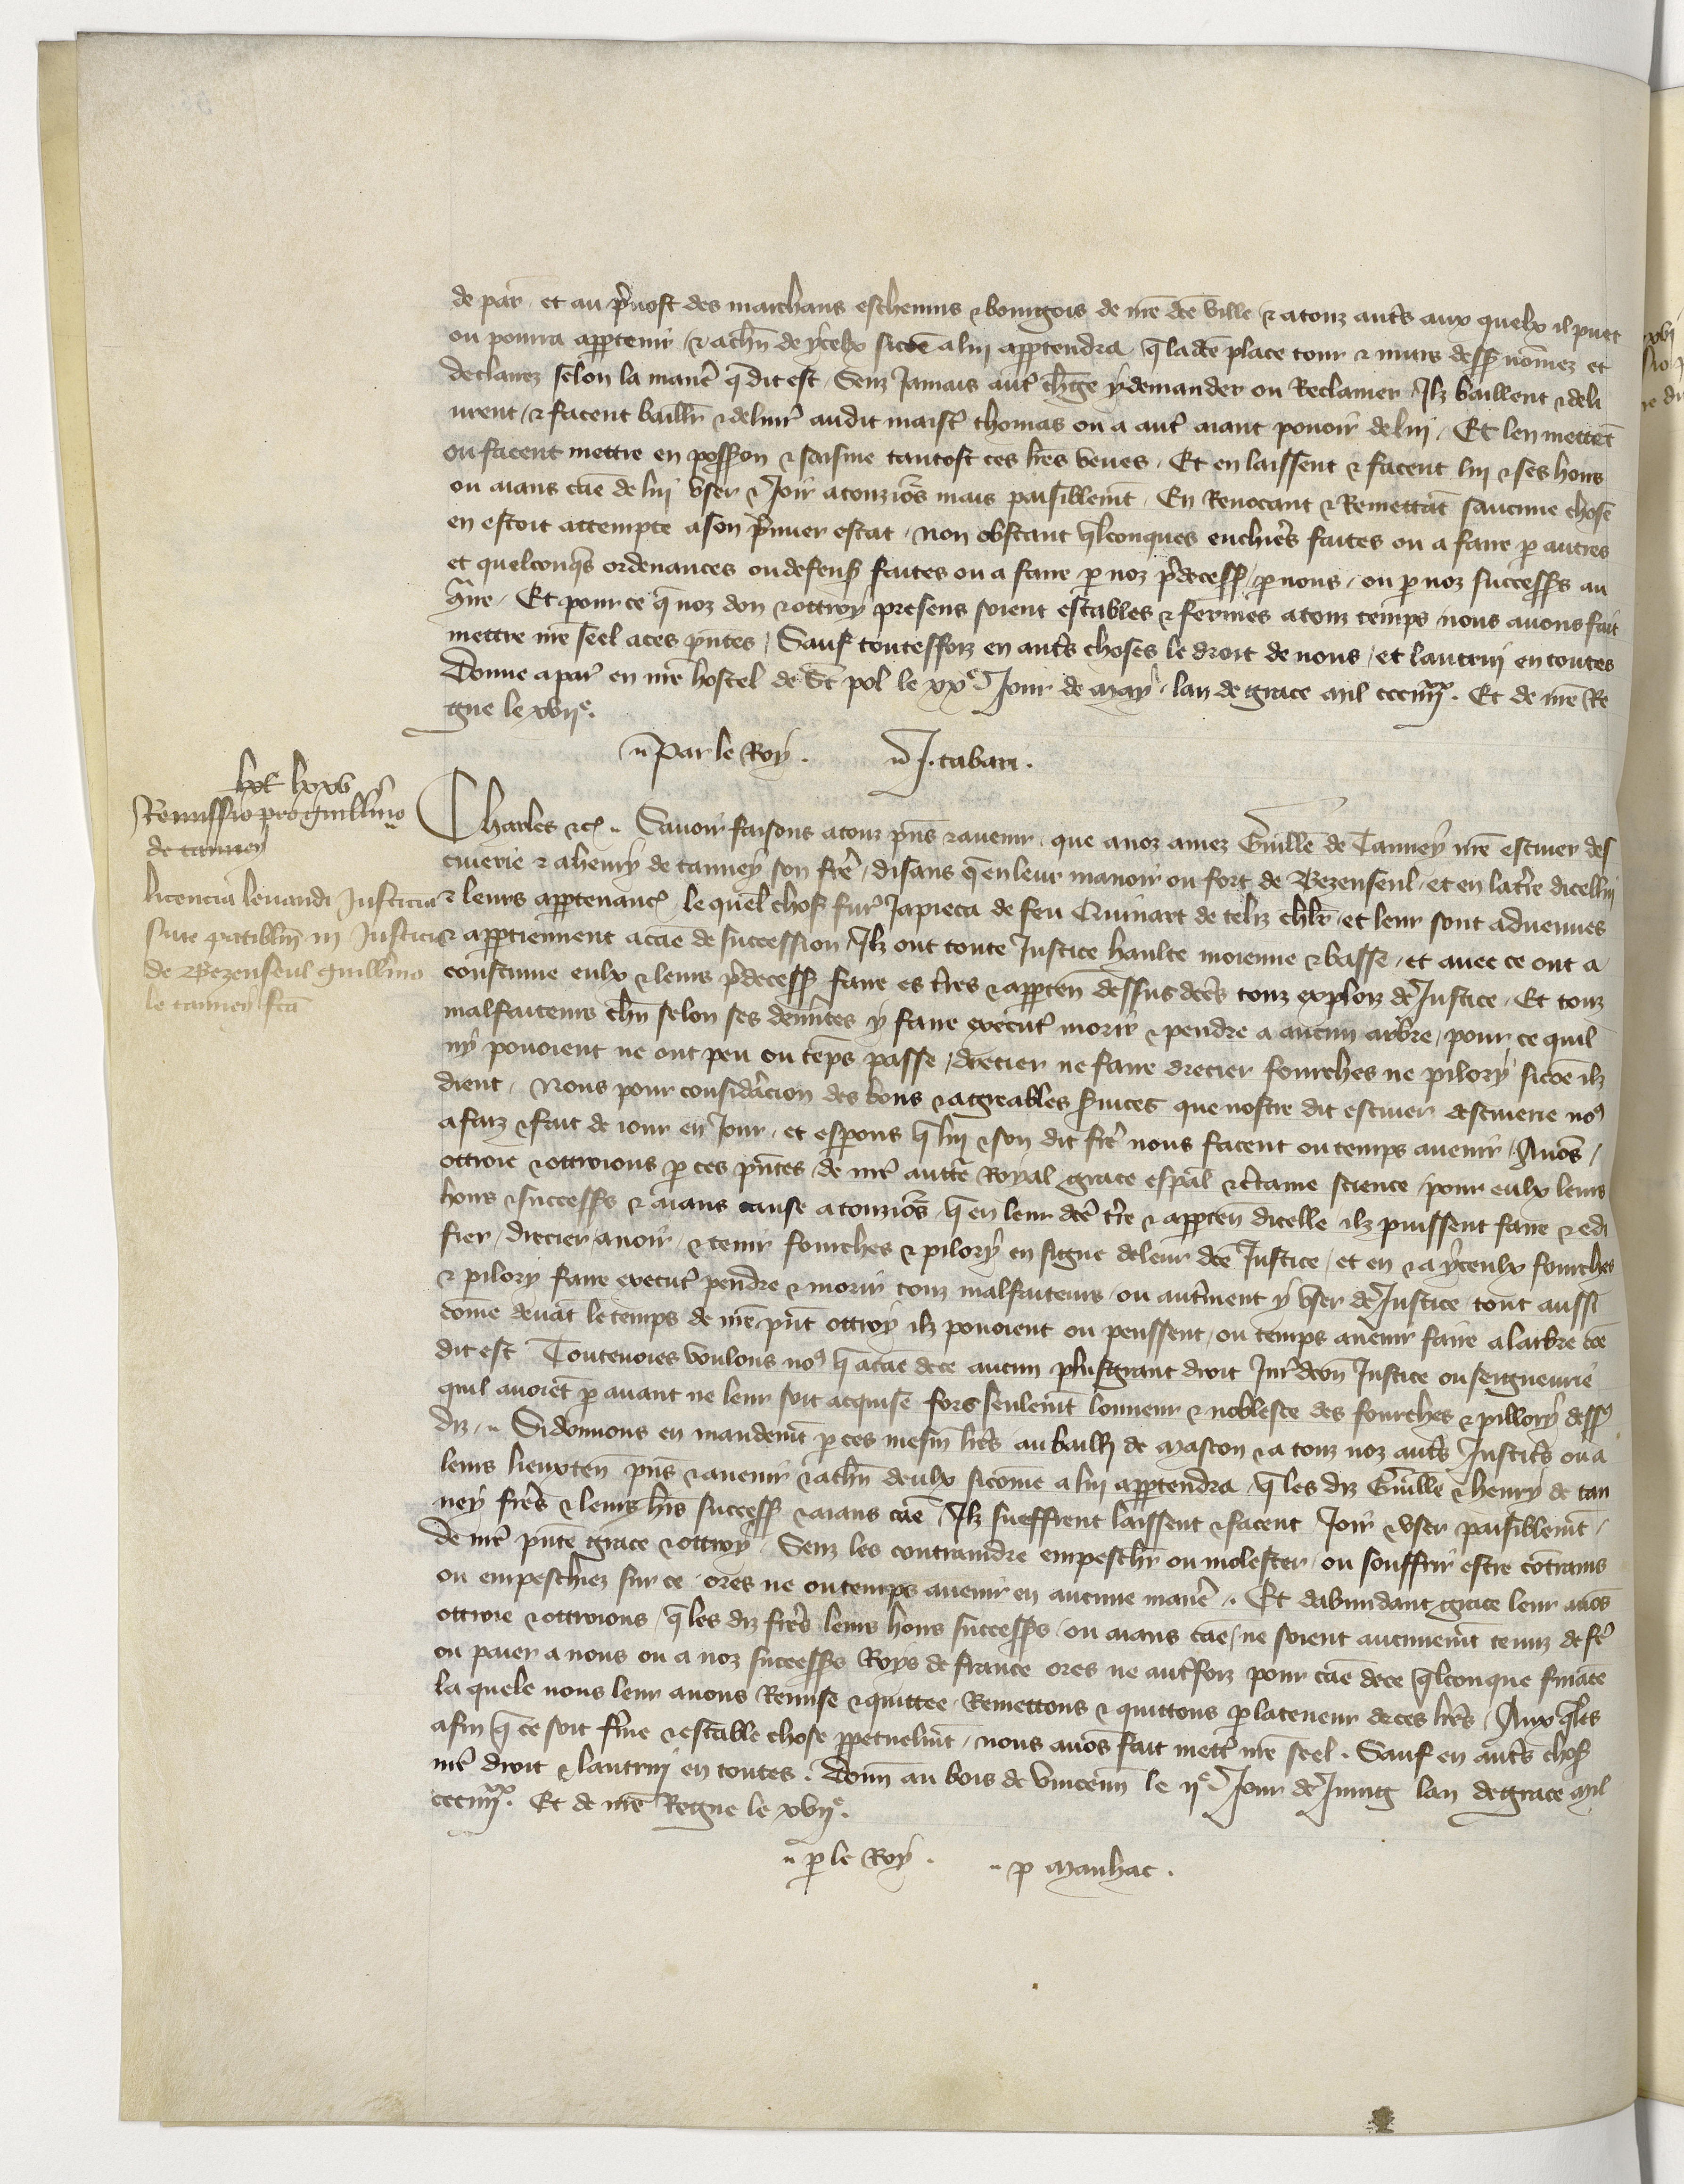 de par̃ et au p̃uost des marchans escheuins & bourgois de nr̃e dc̃e ville / & a touz aut̃s aux quelx il puet
ou pourra appartenir / & a chũn de ycelx sicõe a lui appartendra q̃ la dc̃e place tour & murs dess nõmez et
declarez selon la manc̃e q̃ dit est / Senz Jamais aut̃ ch̃ge y demander ou Reclamer / Ilz baillent & deli
urent / & facent baillr̃ & deliur̃ audit maistr̃ thomas ou a aut̃ aiant pouoir de lui / Et len mettẽt
ou facent mettre en poss̃ion & saisine tantost ces lr̃es veues / Et en laissent & facent lui & ses hoirs
ou aians cãe de lui vser & Joir a touziõs mais paisiblemt̃ / En Reuocant & Remettãt saucune chose
en estoit attempte a son p̃mier estat / non obstant q̃lconques enchier̃s faites ou a faire p autres
et quelconq̃s ordenances ou defens̃ faites ou a faire p noz p̃decess̃ / p nous / ou p noz success̃s au
9traire / Et pour ce q̃ noz don & ottroy presens soient estables & fermes a touz temps / nous auons fait
mettre nr̃e seel a ces p̃ntes / Sauf toutesfoiz en aut̃s choses le droit de nous / et lautruy en toutes
Donne a par̃ en nr̃e hostel de St̃ pol le xxe Jour de May / lan de grace mil ccciiiixx. Et de nr̃e Re
gne le xviie.
Par le Roy . J. tabari .
lxx lxxv
Remissio pro guill̃mo
de tanney
licencia leuandi Justicia
siue patibul̃m in Justicia
de Bezenseul guill̃mo
le tanney fc̃a
Charles &c̃ .. Sauoir faisons a touz p̃ns & auenir / que a noz amez Guill̃e de Tanney nr̃e escuier des
cuierie & a henry de tanney son frẽ / disans q̃ en leur manoir ou fort de Bezenseul / et en la t̃re dicellui
& leurs appartenanc̃ / le quel chos̃ fur̃ Japieca de feu Quinart de teliz chlr̃ / et leur sont aduenues
& apptiennent a cãe de succession / Ilz ont toute Justice haulte moienne & basse / et auec ce ont a
coustume eulx & leurs p̃decess̃ faire es t̃res & apparten̄ dessus dc̃es touz exploiz de Justice / Et touz
malfaiteurs chũn selon ses demẽrites y faire execut̃ morir & pendre a aucun arbre / pour ce quil
ny pouoient ne ont peu ou tẽps passe / drecier ne faire drecier fourches ne pilory sicõe ilz
dient / Nous pour consideracion des bons & agreables s̃uices que nostre dit escuier descuierie no9
a faiz & fait de iour en Jour / et espons q̃ lui & son dit frẽ nous facent ou temps auenir / Auõs /
ottroie & ottroions p ces p̃ntes de nr̃e autte Royal grace esp̃al & c̃taine science / pour eulx leurs
hoirs & success̃s & aians cause a touziõs / q̃ en leur dc̃e t̃re & apparten̄ dicelle ilz puissent faire & edi
fier / drecier / auoir / & tenir fourches & pilory en signe de leur dc̃e Justice / et en & a yceulx fourches
& pilory faire execut̃ pendre & morir touz malfaiteurs / ou aut̃ment y vser de Justice / tout aussi
cõme deuãt le temps de nr̃e p̃nt ottroy ilz pouoient ou peussent / ou temps auenir faire a larbre cõe
dit est / Touteuoies voulons no9 q̃ a cãe de ce aucun plusgrant droit Jur̃diction̄ Justice ou seigneurie
quil auoiẽt p auant ne leur soit acquise fors seulemt̃ lonneur & noblesce des fourches & pillory dess9
diz / .. Si donnons en mandemt̃ p ces mesm̃ lr̃es au bailli de Mascon & a touz noz aut̃s Justic̃s ou a
leurs lieuxten̄ p̃ns & auenir & a chũn deulx sicõme a lui appartendra / q̃ les diz Guill̃e & henry de tan
ney frẽs & leurs hr̃s success̃ & aians cãe / Ilz sueffrent laissent & facent Joir & vser paisiblemt̃ /
de nr̃e p̃nte grace & ottroy / Senz les contraindre empeschr̃ ou molester / ou souffrir estre cõtrains
ou empeschiez sur ce / ores ne ou temps auenir en aucune manc̃e /. Et dabundant grace leur auõs
ottroie & ottroions / q̃ les diz frẽs leurs hoirs success̃s / ou aians cãe / ne soient aucunemt̃ tenuz de fẽ
ou paier a nous ou a noz success̃s Roys de france ores ne aut̃foiz pour cãe de ce q̃lconque finãce
la quele nous leur auons Remise & quittee / Remettons & quittons p la teneur de ces lr̃es / Aux q̃les
afin q̃ ce soit fẽrme & estable chose ppetuelmt̃ / nous auõs fait mett̃ nr̃e seel . Sauf en aut̃s chos̃
nr̃e droit & lautruy en toutes . Donn̄ au bois de vincenn̄ le iie Jour de Juing lan de grace mil
ccciiiixx. Et de nr̃e Regne le xviie.
.. p le Roy . .. p Manhac .